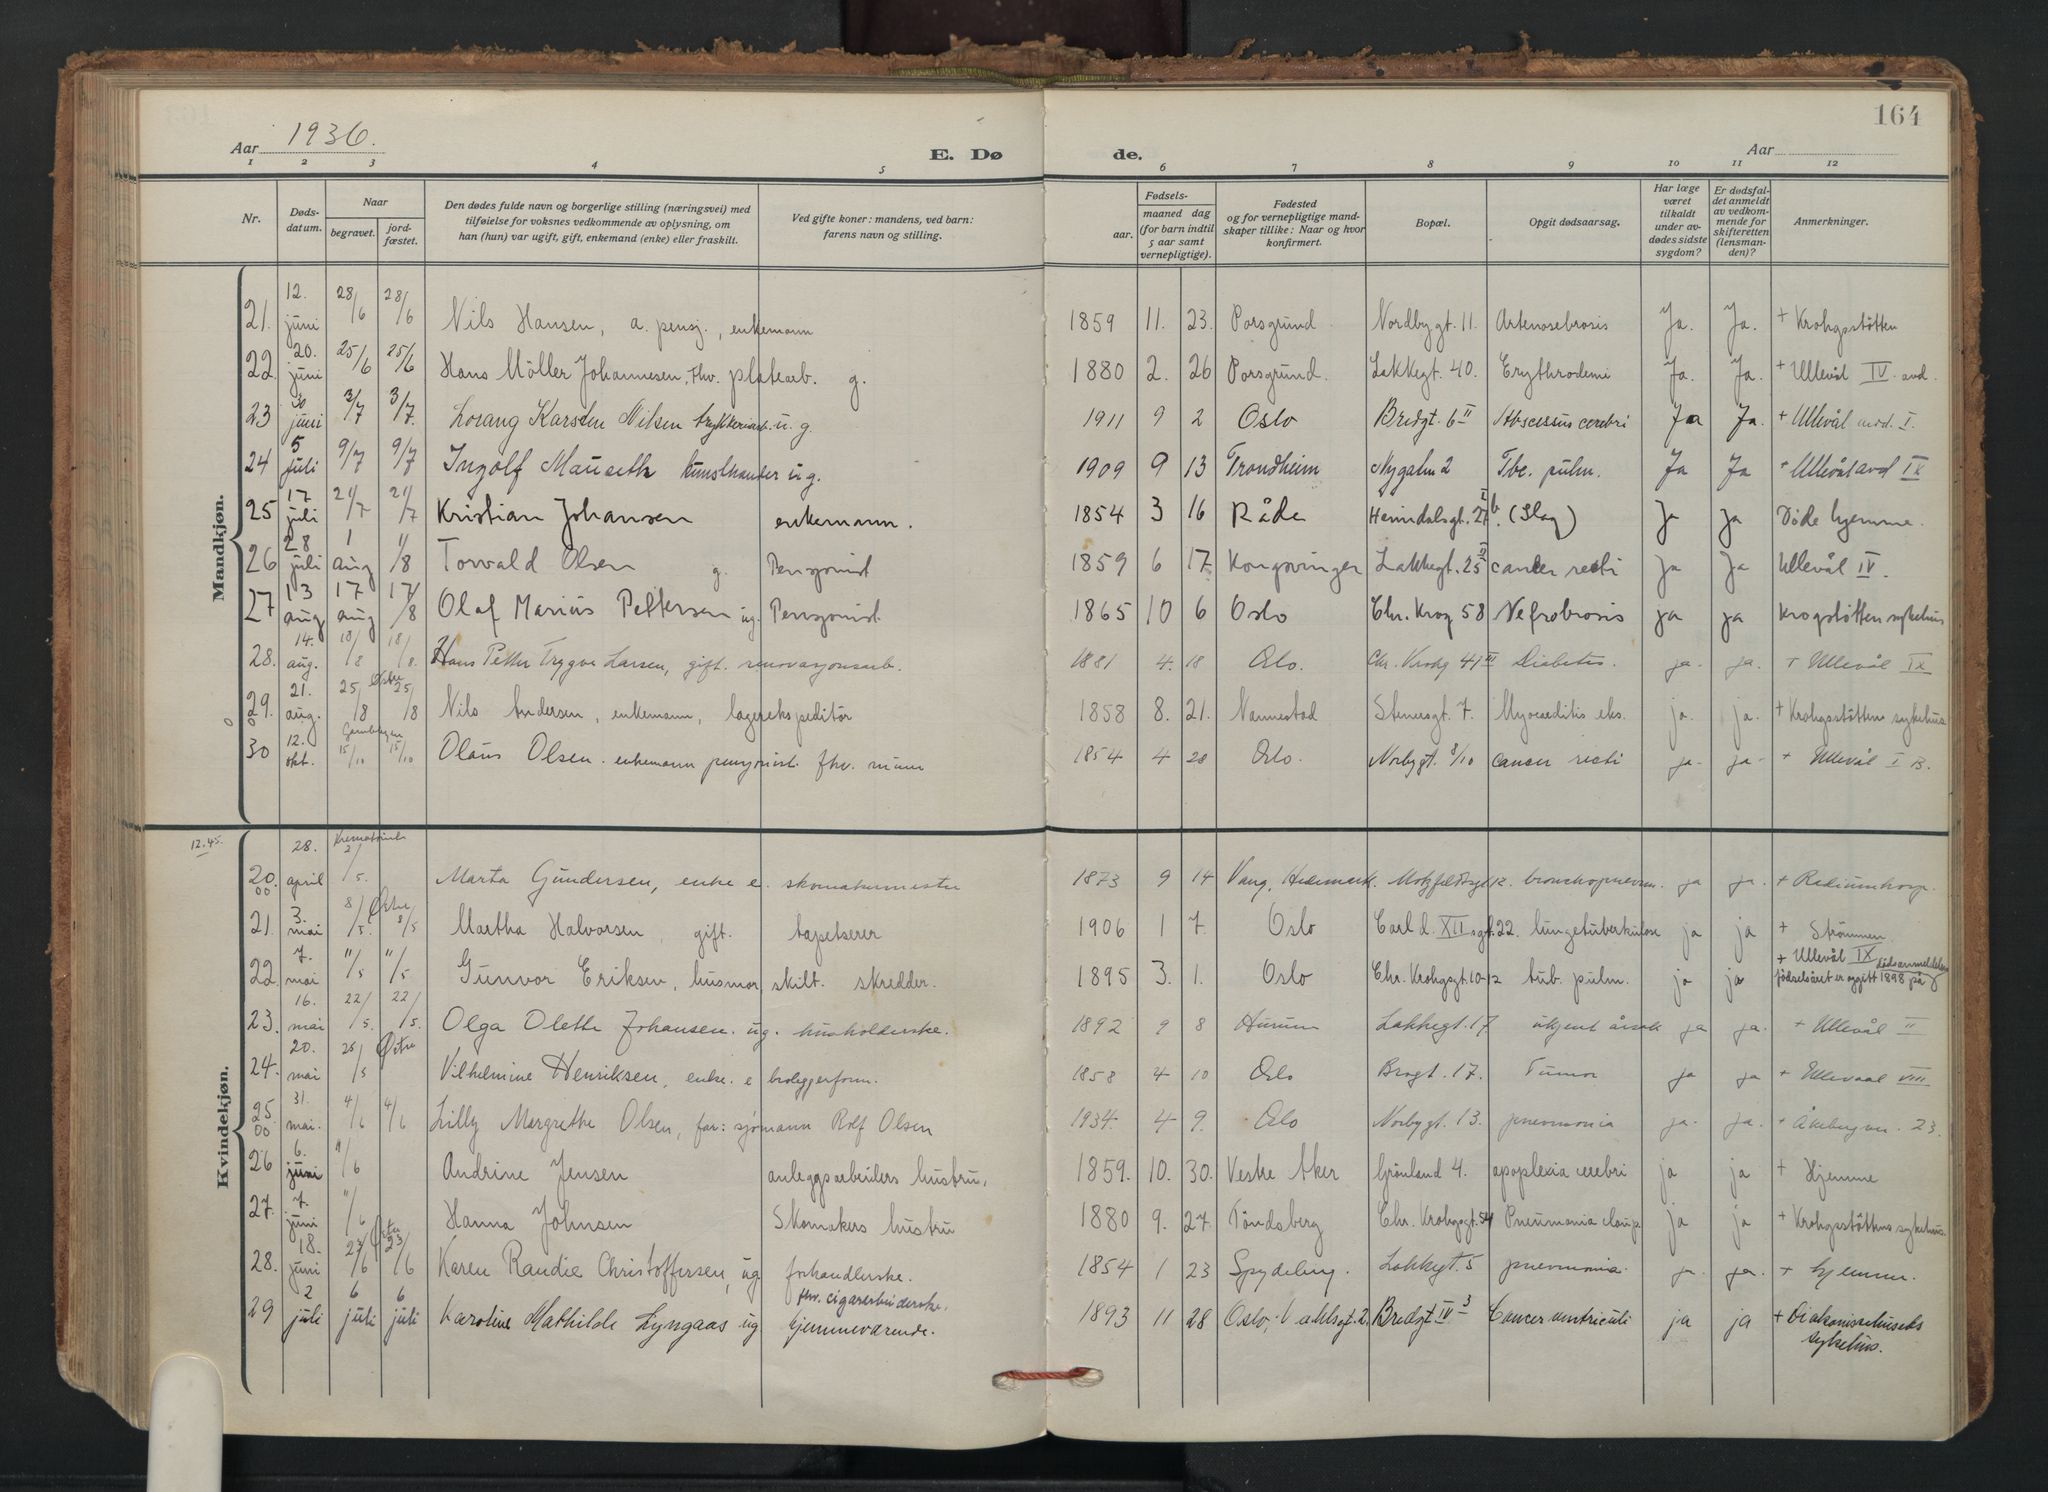 164
Aar 1936.
E. Dø
de.
Aar
1 2 3 4 5 6 7 8 9 10 11 12
Nr.
Døds-
datum.
Naar
begravet.
jord-
fæstet.
Den dødes fulde navn og borgerlige stilling (næringsvei) med
tilføielse for voksnes vedkommende av oplysning, om
han (hun) var ugift, gift, enkemand (enke) eller fraskilt.
Ved gifte koner: mandens, ved barn:
farens navn og stilling.
Fødsels-
aar.
maaned dag
(for barn indtil
5 aar samt
vernepligtige).
Fødested
og for vernepligtige mand-
skaper tillike: Naar og hvor
konfirmert.
Bopæl.
Opgit dødsaarsag.
Har læge
været
tilkaldt
under av-
dødes sidste
sygdom?
Er dødsfal-
det anmeldt
av vedkom-
mende for
skifteretten
(lensman-
den)?
Anmerkninger.
Mandkjøn.
21. 12. juni 28/6 28/6 Nils Hansen, a. pensj., enkemann 1859 11. 23. Porsgrund Nordbygt. 11. Ja. Ja. + Krohgsstøtten
22. 20. juni 25/6 25/6 Hans Möller Johannesen, fhv. platearb. g. 1880 2. 26 Porsgrund. Lakkegt. 40. Erythrodemi Ja. Ja. + Ullevål IV. avd.
23 30 juni 3/7 3/7. Lorang Karsten Nilsen u. g. 1911 9 2 Oslo Bredgt. 6 II Abscessus cerebri Ja Ja. + Ullevål avd. I.
24 5 juli 9/7 9/7 Ingolf u g. 1909 9 13 Trondheim Nygatn 2 Tbc. pulm. Ja Ja + Ullevål avd IX
25 17 juli 21/7 21/7 Kristian Johansen enkemann. 1854 3 16 Råde Heimdalsgt. 27 I b. (Slag) Ja Ja Døde hjemme.
26 28 juli 1 aug 1/8 Torvald Olsen g. Pensjonist 1859 6 17 Kongsvinger Lakkegt. 25 cancer recti Ja Ja Ullevål IV.
27 13 aug 17 aug 17/8 Olaf Marius Pettersen ug. Pensjonist. 1865 10 6 Oslo Chr. Krog 58 Nefrobrosis ja ja Krogstøtten sykehus
28. 14. aug. 18/8 18/8. Hans Petter Trygve Larsen, gift. renovasjonsarb. 1881 4. 18 Oslo. Chr. Krohg 41 III Diabetes. ja. ja. + Ullevål IX
29. 21. aug. 25/8 Østre 25/8 Nils Andersen, enkemann, lagerekspeditör 1858 8. 21. Nannestad Stenersgt. 7. Myocarditis eks. ja. ja. + Krohgsstøttens sykehus
30 12. okt. 15/10 15/10 Olaus Olsen. enkemann pensjonist. fhv. murer 1854 4 20 Oslo. Norbygt. 8/10 cancer recti ja. ja. + Ullevål I B.
Kvindekjøn.
12.45.
20. 28. april 2/5. Marta Gundersen, enke e. skomakermester 1873 9 14 Vang, Hedemark. 12. bronchopneum. ja ja. + Radiumhosp.
21. 3. mai 8/5. Østre 8/5 Martha Halvorsen, gift. tapetserer 1906 1 7. Oslo Carl d. XII sgt. 22. lungetuberkulose ja ja + Strömmen.
22. 7. mai 11/5 11/5 Gunvor Eriksen, husmor skilt. skredder. 1895 3. 1. Oslo Chr. Krohgsgt. 10-12 tub. pulm. ja ja + Ullevål IX fødselsåret er opgitt 1898 på dødsanmeldelsen
23. 16. mai 22/5. 22/5. Olga Olette Johansen. ug. husholderske. 1892 9 8 Hurum Lakkegt. 17 ukjent årsak ja ja. + Ullevål II
24. 20. mai 25/5 Østre Vilhelmine Henriksen, enke. e broleggerform. 1858 4 10 Oslo Brogt. 17. Tumor ja ja + Ullevaal VIII
25 31. mai. 4/6 4/6 Lilly Margrethe Olsen, far: sjømann Rolf Olsen 1934. 4 9. Oslo Norbygt. 13. pneumonia ja. ja. + Åkebergvn. 23.
26 6. juni 11/6 Andrine Jensen anleggsarbeiders hustru. 1859. 10. 30. Vestre Aker Grönland 4. apoplexia cerebri ja ja + Hjemme
27. 7. juni 11/6 Hanna Johnsen Skomakers hustru 1880 9. 27. Töndsberg Chr. Krohgsgt. 54 Pneumonia croup. ja ja + Krohgsstøttens sykehus.
28. 18. juni 23/6 Østre 23/6 Karen Randie Christoffersen, ug forhandlerske. 1854 1 23 Spydeberg. Lakkegt. 5 pneumonia. ja. ja. + hjemme.
29 2 juli 6 juli 6 juli Karoline Mathilde Lyngaas ug fhv. cigararbeiderske. hjemmeværende. 1893 11 28 Oslo, Vahlsgt. 2. Bredgt IV 3 Cancer ventriculi ja ja + Diakonissehusets sykehus.